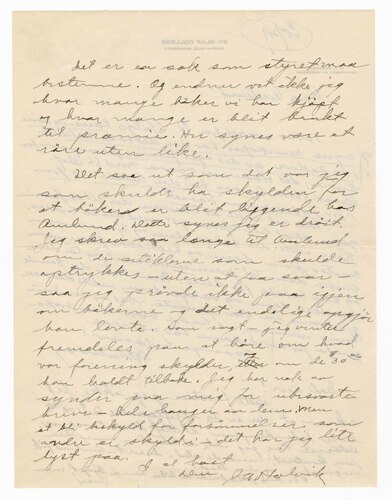 Det er en sak som styret maa
bestemme. Og endnu vet ikke jeg
hvor mange bøker vi har kjøpt
og hvor mange er blit brukt
til præmie. Her synes være et
rot uten like.
Det saa ut som det var jeg
som skulde ha skylden for
at bøkene er blit liggende hos
Amlund. Dette synes jeg er drøit.
Jeg skrev saa længe til Amlund
om de artiklerne som skulde
optrykkes – uten at faa svar –
saa jeg prøvde ikke paa igjen
om bøkerne og det endelige opgjør
han lovte. Som sagt, jeg venter
fremdeles paa at høre om hvad
vor forening skylder, om de $30.00
han holdt tilbake. Jeg har nok av
synder paa mig for ubesvarte
breve – hele hauger av dem. Men
at bli beskyldt for forsømmelser som
andre er skyldi – det har jeg lite
lyst paa.
I al hast
din J A Holvik